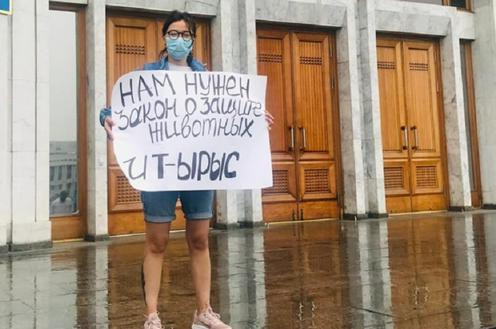 НАМ НУЖЕН
ЗАКОН О ЗАЩИТЕ
ЖИВОТНЫХ
И Т-ЫРЫС